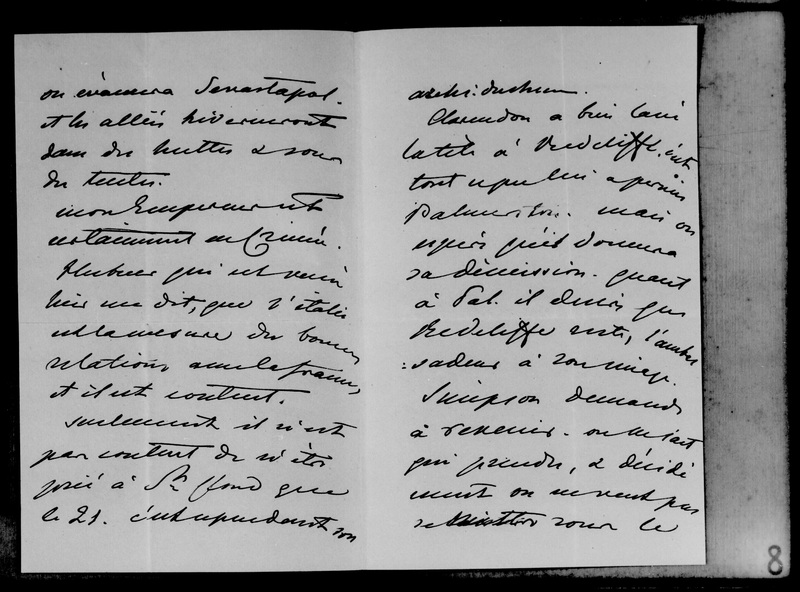 on évacuera Sevastapol.
et les alliés hiverneront
dans des huttes & sous
des tentes.
mon Empereur est
certainement en Crimée.
Hubner qui est venu
hier me dit, que l'italie
est la mesure des bonnes
relations avec la france,
et il est content.
seulement il n'est
pas content de n'être
prié à St Cloud que
le 21. c'est cependant son
archi-duchesse.
Clarendon a bien lavé
la tête à Redcliffe. c'est
tout ce que lui a permis
Palmerston. mais on
espère qu'il donnera
sa démission. quant
à Pal. il désire que
Redcliffe reste, l'ambas
=sadeur à son image.
Simpson demande
à revenir. on ne sait
qui prendre, & décidé
ment on ne veut pas
se mettre sous le
8